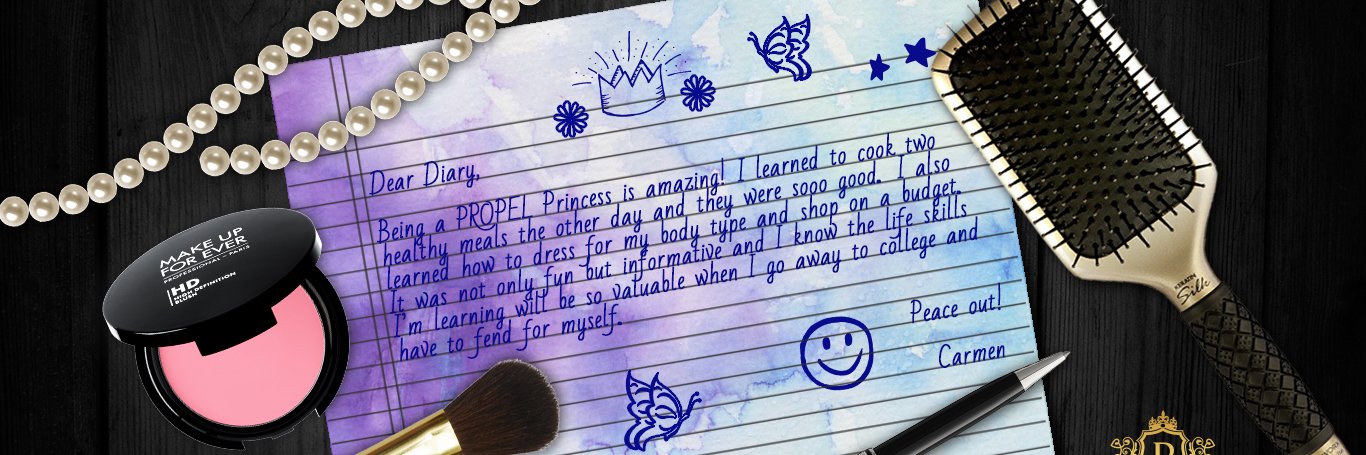 Dear Diary,
Being a PROPEL Princess is amazing! I learned to cook two
healthy meals the other day and they were sooo good. I also
learned how to dress for my body type and shop on a budget.
It was not only fun but informative and I know the life skills
I'm learning will be so valuable when I go away to college and
have to fend for myself.
Peace out!
Carmen
MAKE UP
FOR EVER
PROFESSIONAL - PARIS
HD
HIGH DEFINITION
BLUSH
KERATIN
Silk